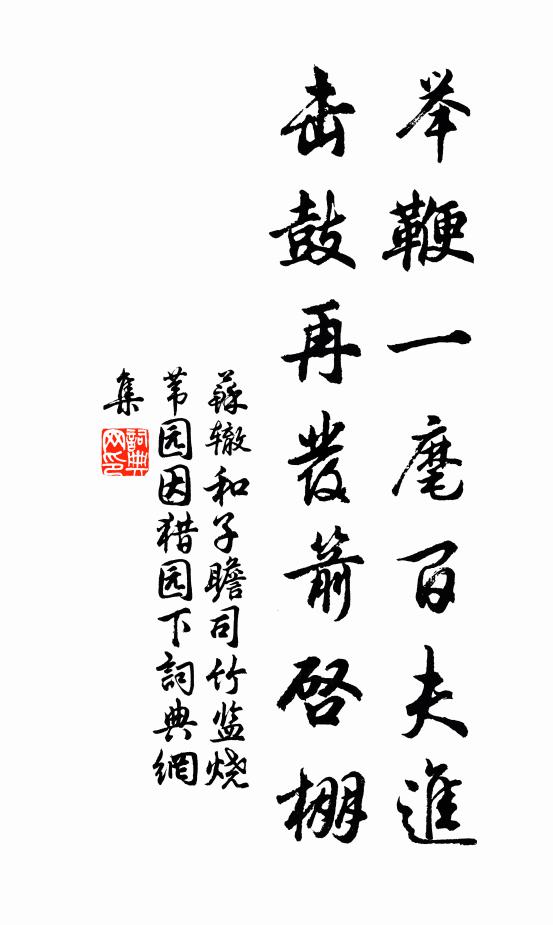 举鞭一麾百夫進
击鼓再发箭启棚
蘇辙和子瞻司竹监烧
苇园因猎园下詞典網
集
詞典
网印